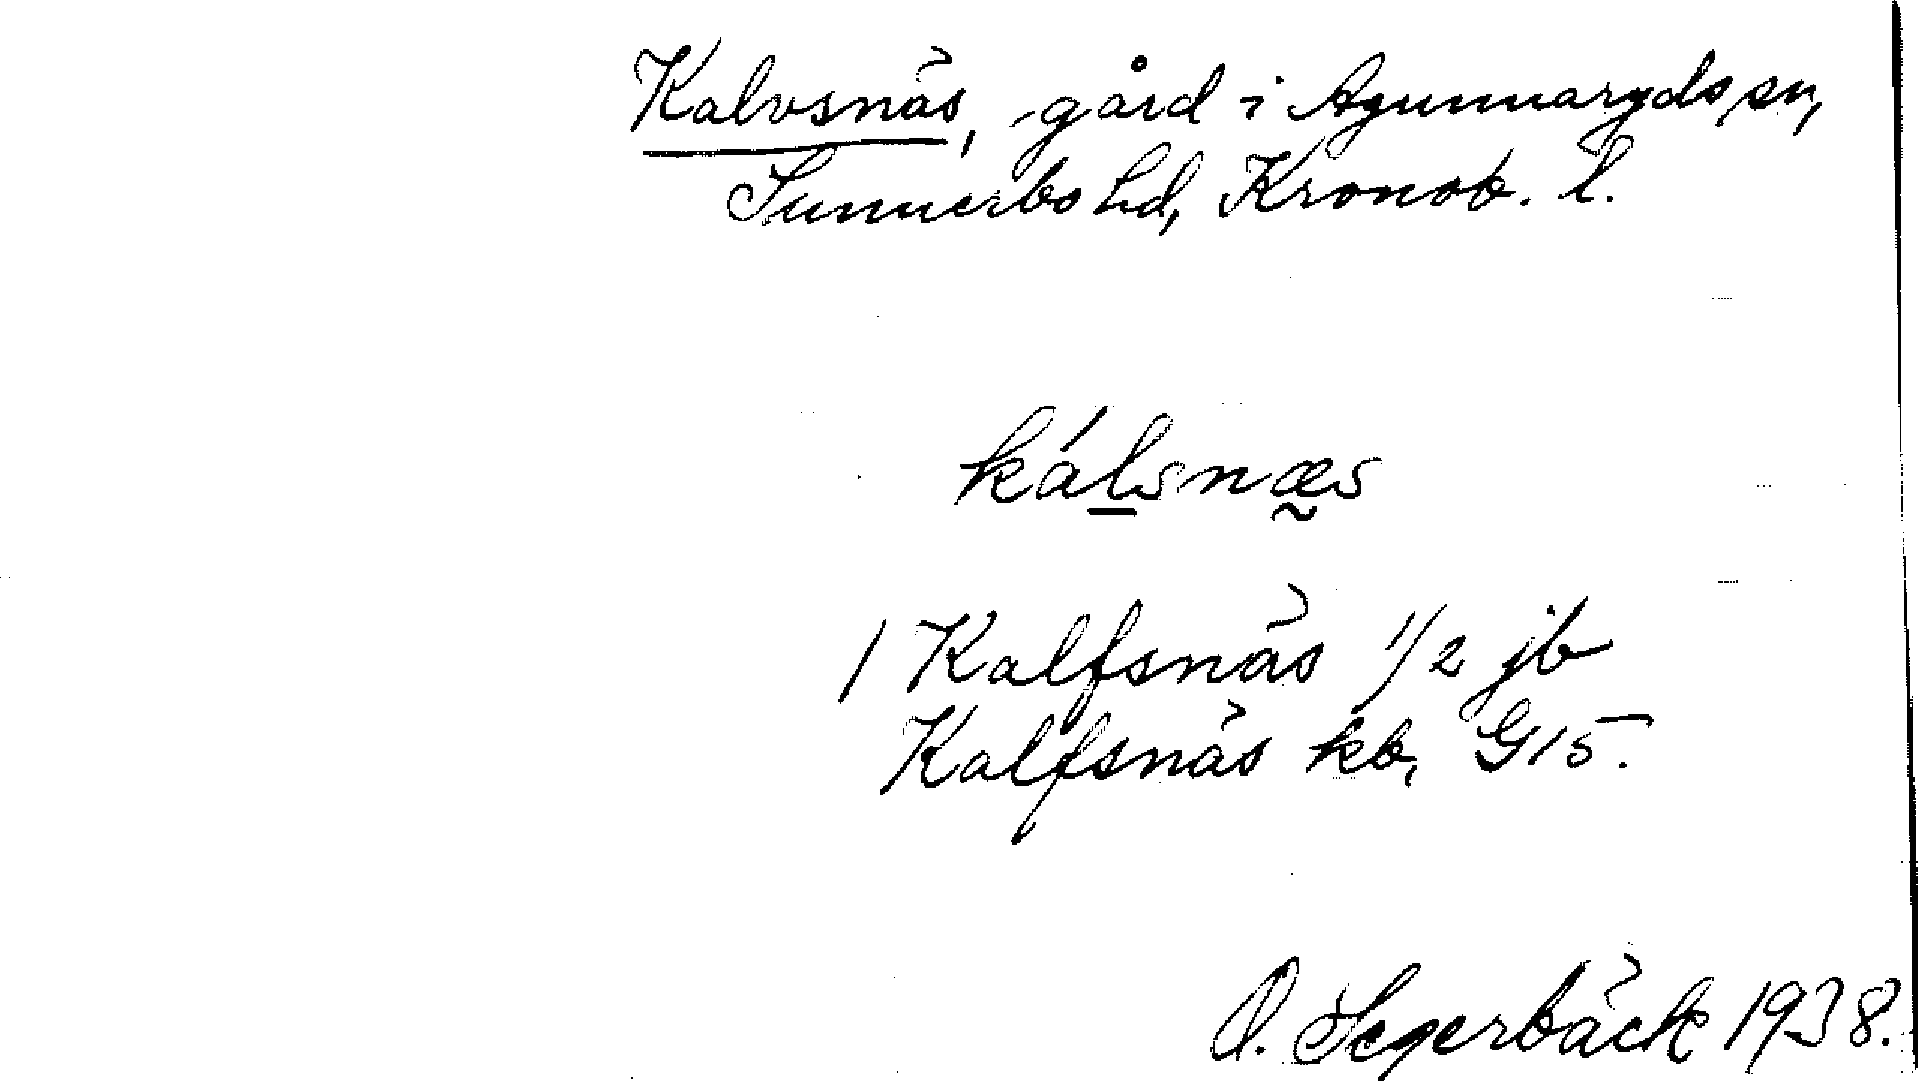 Kalvsnäs, gård i Agunnaryds sn,
Sunnerbo hd, Kronob. l.
kálsnæs
1 Kalfsnäs 1/2 jb
Kalfsnäs kb, G15.
O. Segerbäck 1938.